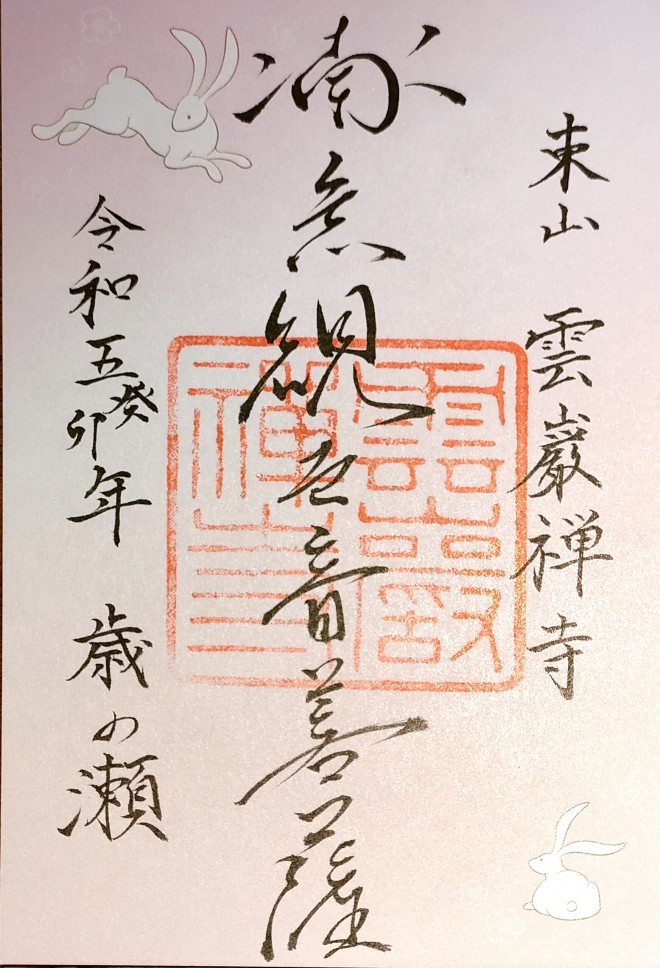 東山 雲巌禅寺
南無観世音菩薩
令和五癸卯年 歳の瀬
雲巖
禅寺